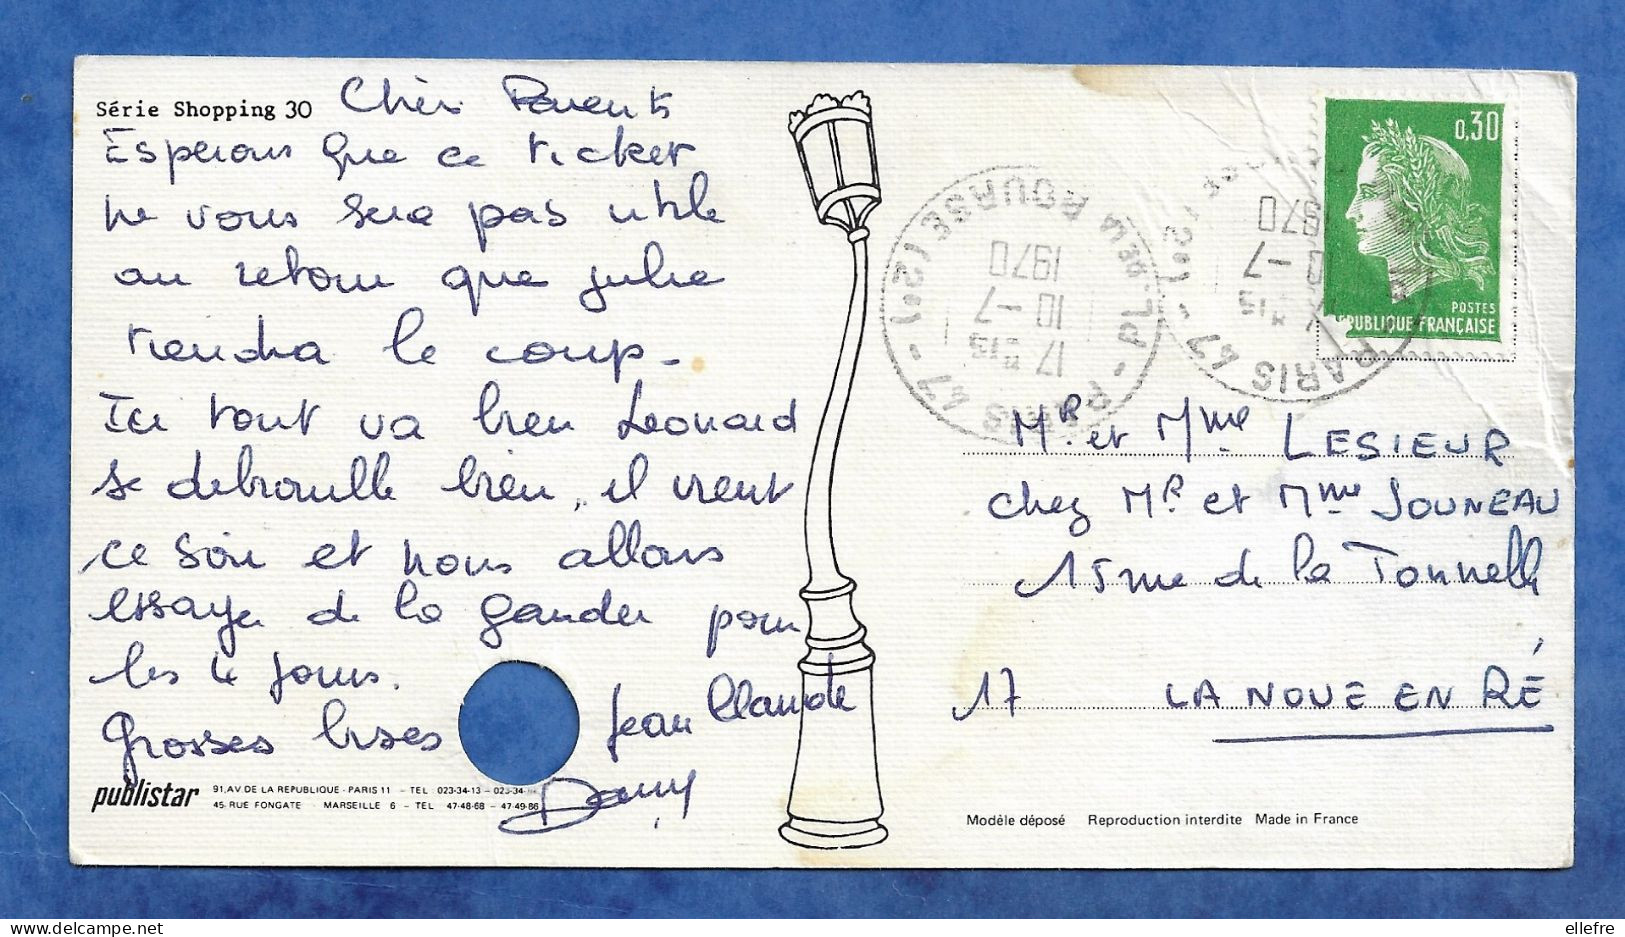 Série Shopping 30
Chers Parents
Esperons que ce ticket
ne vous sera pas utile
au retour que julie
tiendra le coup -
Ici tout va bien Leonard
se debrouille bien, il vient
ce soir et nous allons
essayer de la garder pour
les 4 jours.
Grosses bises
Jean Claude
Dany
publistar
91, AV DE LA REPUBLIQUE - PARIS 11 - TEL 023-34-13 - 023-34-
45, RUE FONGATE - MARSEILLE 6 - TEL 47-48-68 - 47-49-86
0,30
POSTES
RÉPUBLIQUE FRANÇAISE
PARIS 47 - PL. DE LA BOURSE (2e) -
17 H 15
10 -7
1970
PARIS 47
15
-7
1970
Mr. et Mme LESIEUR
chez Mr et Mme JOUNEAU
15 rue de la Tonnelle
17 LA NOUE EN RÉ
Modèle déposé Reproduction interdite Made in France
ellefre